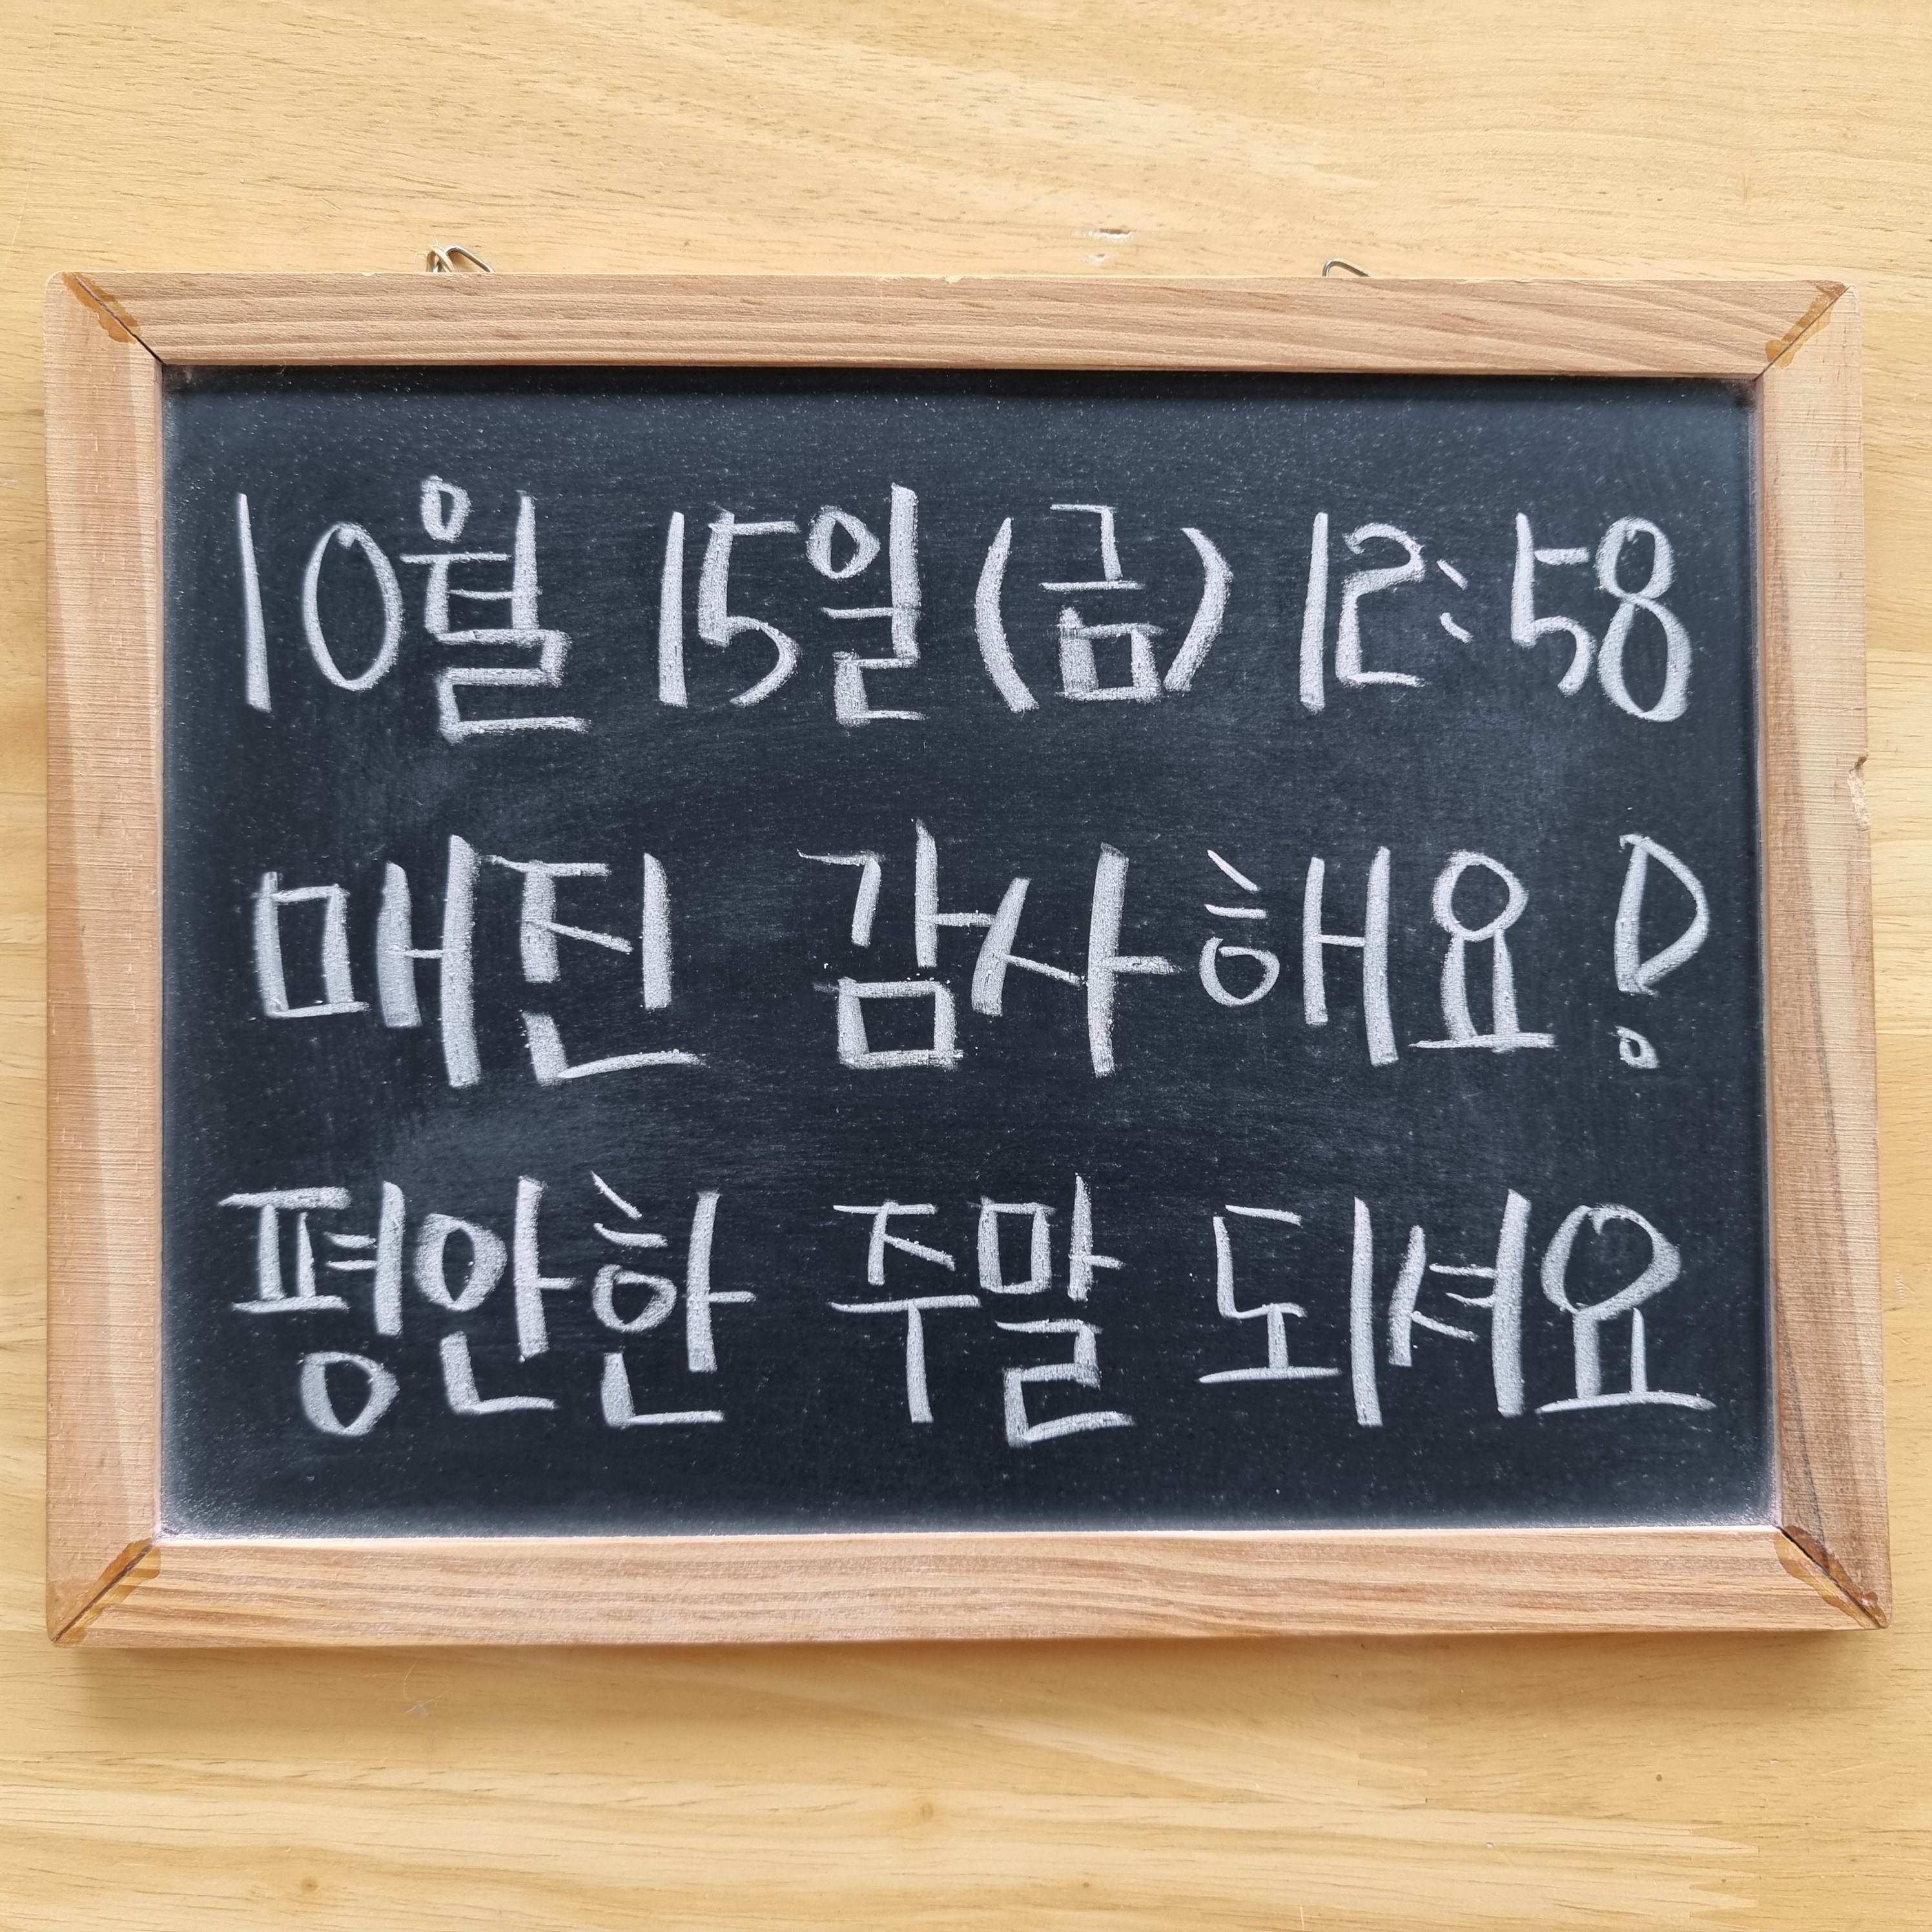 10월 15일(금) 12:58
매진 감사해요!
평안한 주말 되셔요